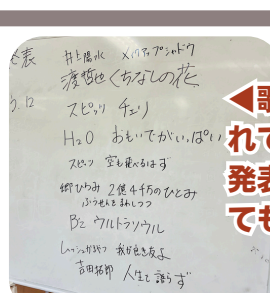 発表
井上陽水 メイクアップシャドウ
渡哲也 くちなしの花
スピッツ チェリー
H₂O おもいでがいっぱい
スピッツ 空も飛べるはず
郷ひろみ 2億4千万のひとみ
ふうせん
B'z ウルトラソウル
我が良き友よ
吉田拓郎 人生を語らず
◀歌
れて
発表
ても